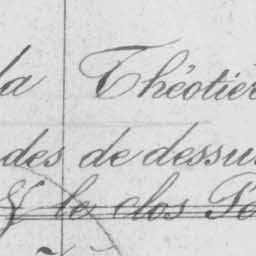 la Théotiè
des de dessu
& le clos Po